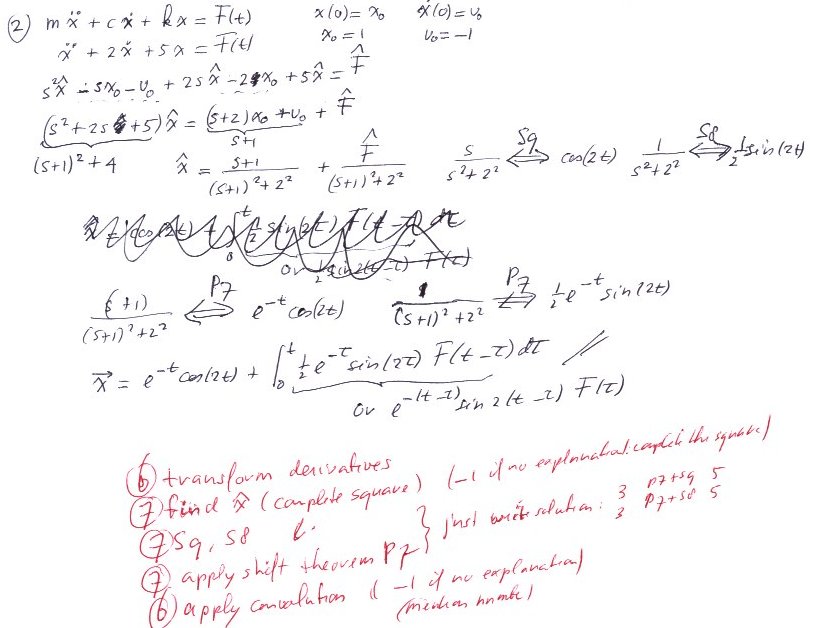 ② mẍ + cẋ + kx = F(t)   x(0) = x₀   ẋ(0) = v₀
ẍ + 2ẋ + 5x = F(t)   x₀ = 1   v₀ = -1
s²x̂ - sx₀ - v₀ + 2sx̂ - 2x₀ + 5x̂ = F̂
(s² + 2s + 5)x̂ = (s+2)x₀ + v₀ + F̂
s+1
(s+1)² + 4   x̂ = (s+1)/((s+1)² + 2²) + F̂/((s+1)² + 2²)   s/(s² + 2²) ⟺ S9 cos(2t)   1/(s² + 2²) ⟺ S8 ½ sin(2t)
or ½ sin 2(t-τ) F(τ)
(s+1)/((s+1)² + 2²) ⟺ P7 e^{-t} cos(2t)   1/((s+1)² + 2²) ⟺ P7 ½ e^{-t} sin(2t)
x = e^{-t} cos(2t) + ∫₀ᵗ ½ e^{-τ} sin(2τ) F(t-τ) dτ //
or e^{-(t-τ)} sin 2(t-τ) F(τ)
⑥ transform derivatives
⑦ find x̂ (complete square) (-1 if no explanation: complete the square)
⑦ S9, S8   } just write solution: 3 P7+S9 5
⑦ apply shift theorem P7   3 P7+S8 5
⑥ apply convolution (-1 if no explanation)
(median number)